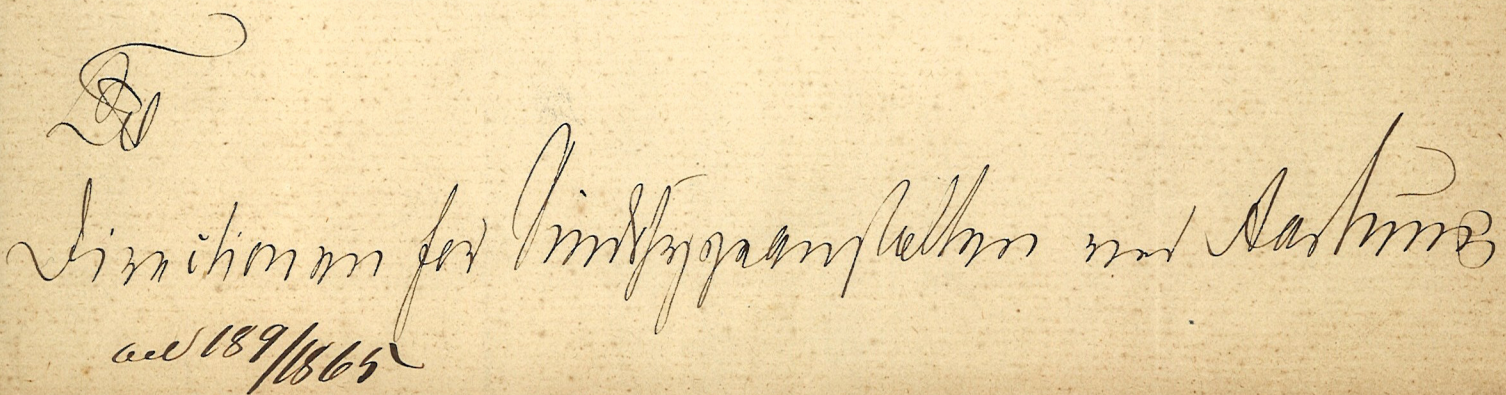 Til
Directionen for Sindssygeanstalten ved Aarhuus
ad 189/1865